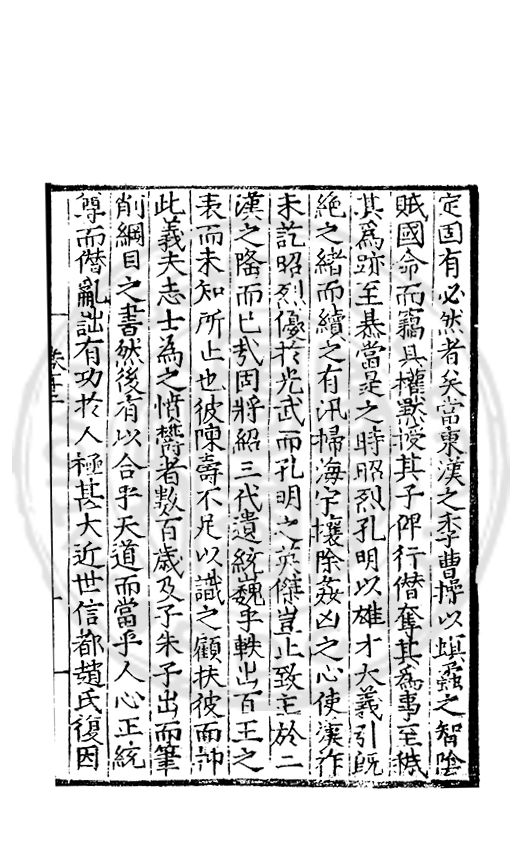 定固有必然者矣當東漢之季曹操以螟蟊之智陰
賊國命而竊其權默授其子俾行僭奪其為事至機
其為跡至暴當是之時昭烈孔明以雄才大義引既
絶之緒而續之有汛掃海宇攘除姦凶之心使漢祚
未訖昭烈優於光武而孔明之英傑豈止致主於二
漢之隆而已哉固將紹三代遺統巍乎軼出百王之
表而未知所止也彼陳壽不足以識之顧扶彼而抑
此義夫志士為之憤欝者數百歲及子朱子出而筆
削綱目之書然後有以合乎天道而當乎人心正統
尊而僭亂詘有功於人極甚大近世信都趙氏復因